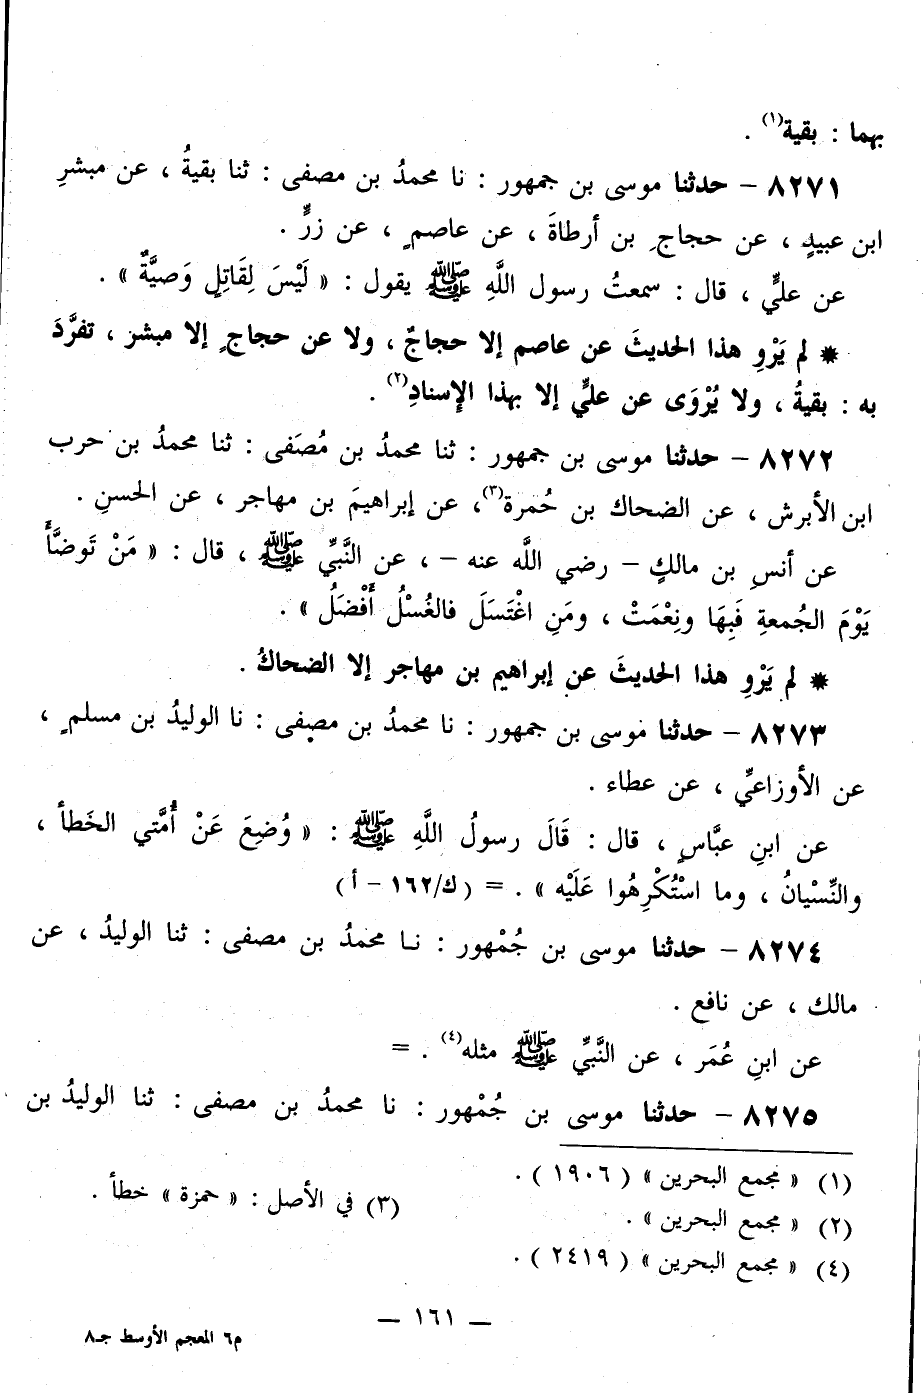 بهما : بقية(١) .
٨٢٧١ – حدثنا موسى بن جمهور : نا محمدُ بن مصفى : ثنا بقيةُ ، عن مبشرِ
ابن عبيدٍ ، عن حجاجِ بن أرطاةَ ، عن عاصمٍ ، عن زرٍّ .
عن عليٍّ ، قال : سمعتُ رسول اللَّهِ ﷺ يقول : « لَيْسَ لِقَاتِلٍ وَصيَّةٌ » .
* لم يَرْوِ هذا الحديثَ عن عاصم إلا حجاجٌ ، ولا عن حجاجٍ إلا مبشر ، تفرَّدَ
به : بقيةُ ، ولا يُرْوَى عن عليٍّ إلا بهذا الإِسنادِ(٢) .
٨٢٧٢ – حدثنا موسى بن جمهور : ثنا محمدُ بن مُصَفى : ثنا محمدُ بن حرب
ابن الأبرش ، عن الضحاك بن حُمرة(٣)، عن إبراهيمَ بن مهاجر ، عن الحسنِ .
عن أنسِ بن مالكٍ – رضي اللَّه عنه – ، عن النَّبيِّ ﷺ ، قال : « مَنْ تَوضَّأَ
يَوْمَ الجُمعةِ فَبِهَا ونِعْمَتْ ، ومَنِ اغْتَسَلَ فالغُسْلُ أَفْضَلُ » .
* لم يَرْوِ هذا الحديثَ عن إبراهيم بن مهاجر إلا الضحاكُ .
٨٢٧٣ – حدثنا موسى بن جمهور : نا محمدُ بن مصفى : نا الوليدُ بن مسلمٍ ،
عن الأوزاعيِّ ، عن عطاء .
عن ابنِ عبَّاسٍ ، قال : قَالَ رسولُ اللَّهِ ﷺ : « وُضِعَ عَنْ أُمَّتي الخَطأ ،
والنِّسْيانُ ، وما اسْتُكْرِهُوا عَلَيْه » . = ( ك/١٦٢ – أ )
٨٢٧٤ – حدثنا موسى بن جُمْهور : نا محمدُ بن مصفى : ثنا الوليدُ ، عن
مالك ، عن نافع .
عن ابنِ عُمَر ، عن النَّبيِّ ﷺ مثله(٤) . =
٨٢٧٥ – حدثنا موسى بن جُمْهور : نا محمدُ بن مصفى : ثنا الوليدُ بن
(١) « مجمع البحرين » ( ١٩٠٦ ) .
(٢) « مجمع البحرين » .
(٣) في الأصل : « حمزة » خطأ .
(٤) « مجمع البحرين » ( ٢٤١٩ ) .
– ١٦١ –
م٦ المعجم الأوسط جـ٨